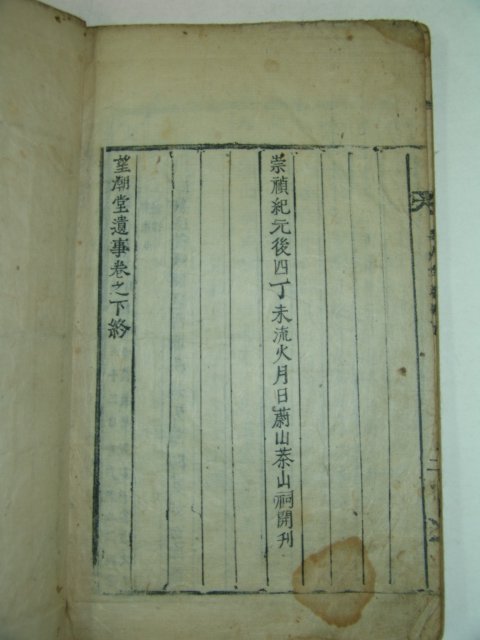 崇禎紀元後四丁未流火月日蔚山茶山祠開刊
望潮堂遺事卷之下終